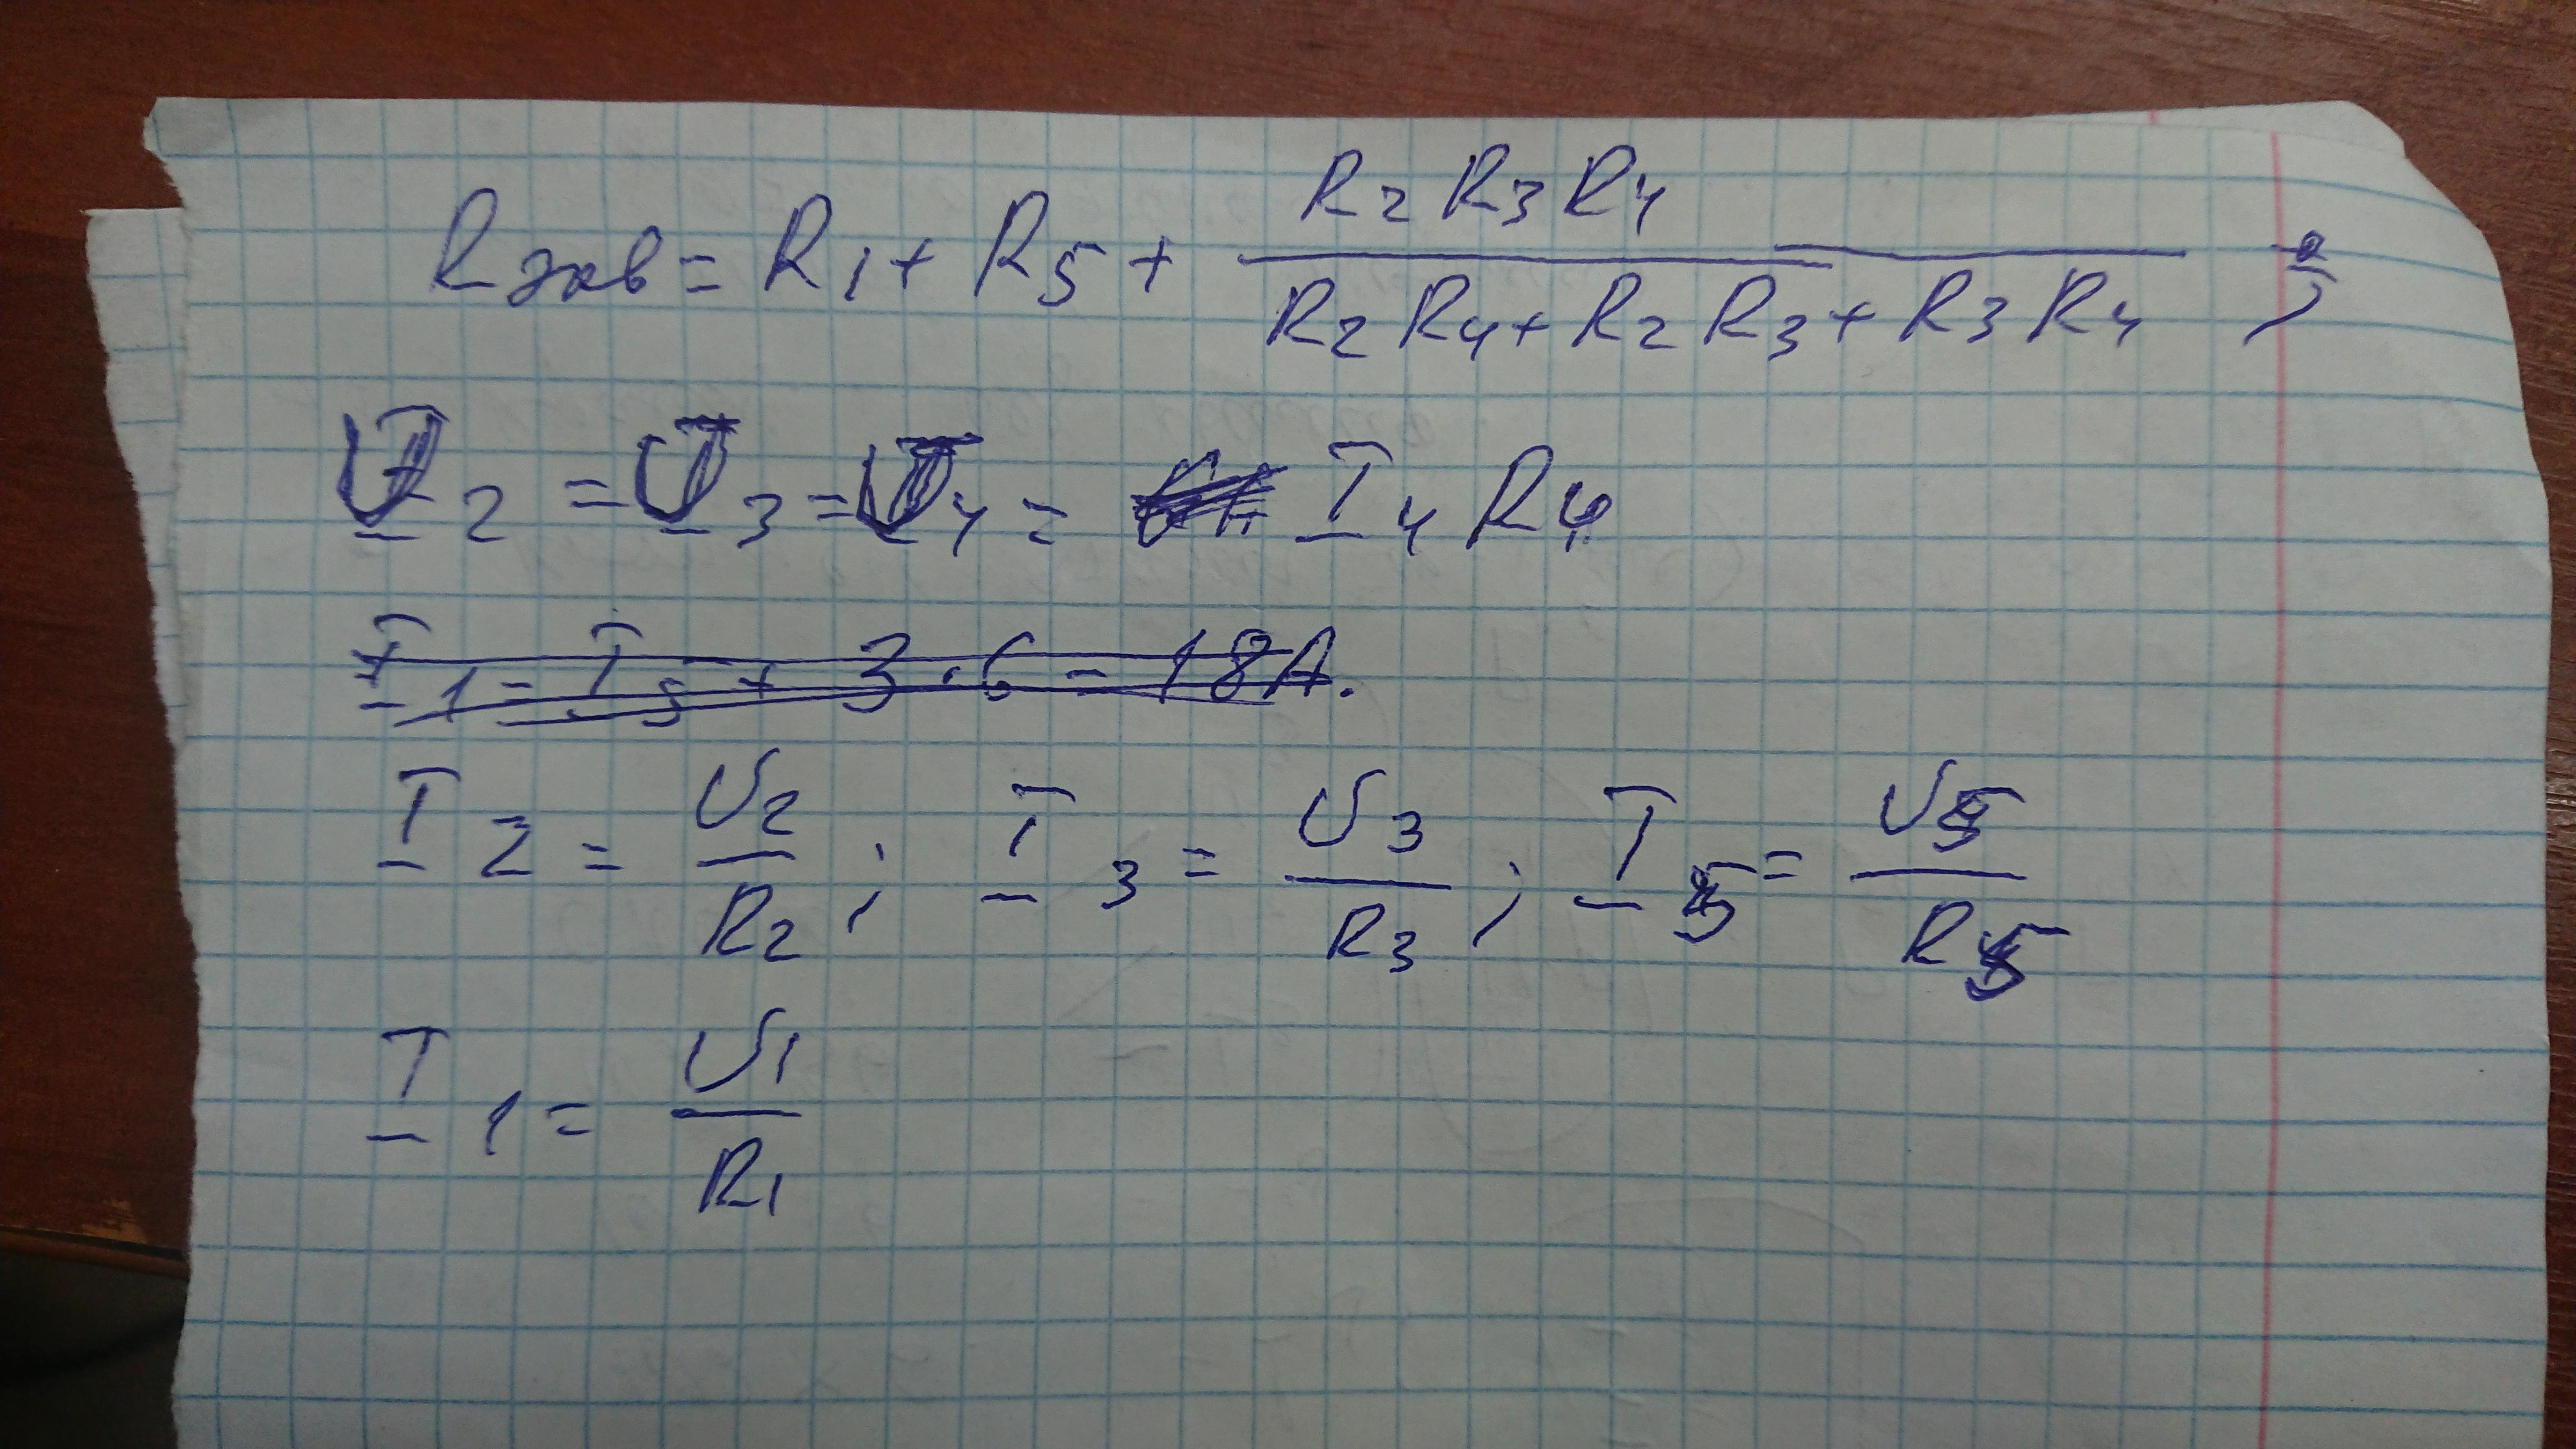 Rэкв = R1 + R5 + R2R3R4 / (R2R4 + R2R3 + R3R4) ;
U2 = U3 = U4 = I4 R4
I1 = I5 + 3 · 6 = 18A.
I2 = U2 / R2 ; I3 = U3 / R3 ; I5 = U5 / R5
I1 = U1 / R1